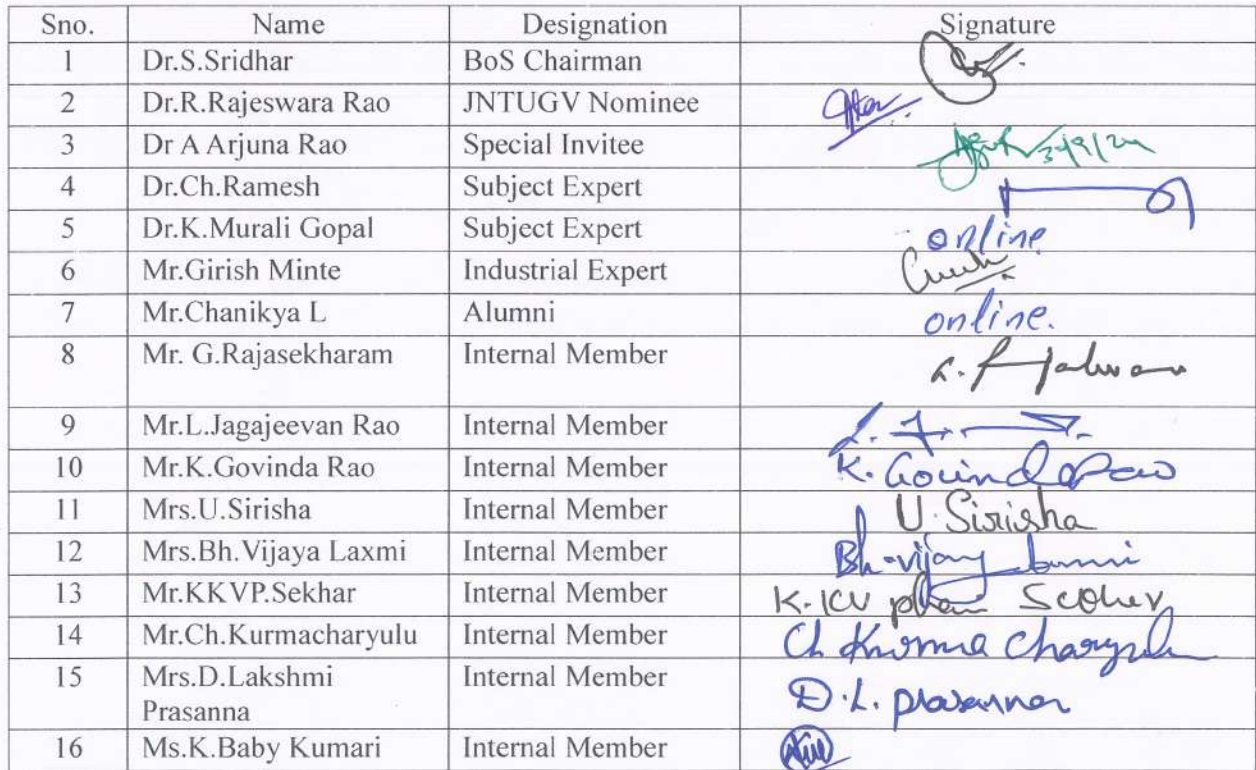 Sno. Name Designation Signature
1 Dr.S.Sridhar BoS Chairman
2 Dr.R.Rajeswara Rao JNTUGV Nominee
3 Dr A Arjuna Rao Special Invitee
4 Dr.Ch.Ramesh Subject Expert
5 Dr.K.Murali Gopal Subject Expert online
6 Mr.Girish Minte Industrial Expert
7 Mr.Chanikya L Alumni online.
8 Mr. G.Rajasekharam Internal Member
9 Mr.L.Jagajeevan Rao Internal Member
10 Mr.K.Govinda Rao Internal Member K. Govinda Rao
11 Mrs.U.Sirisha Internal Member U. Sirisha
12 Mrs.Bh.Vijaya Laxmi Internal Member Bh.vijaya
13 Mr.KKVP.Sekhar Internal Member
14 Mr.Ch.Kurmacharyulu Internal Member Ch Kurma Charyulu
15 Mrs.D.Lakshmi Internal Member D.L. prasanna
Prasanna
16 Ms.K.Baby Kumari Internal Member